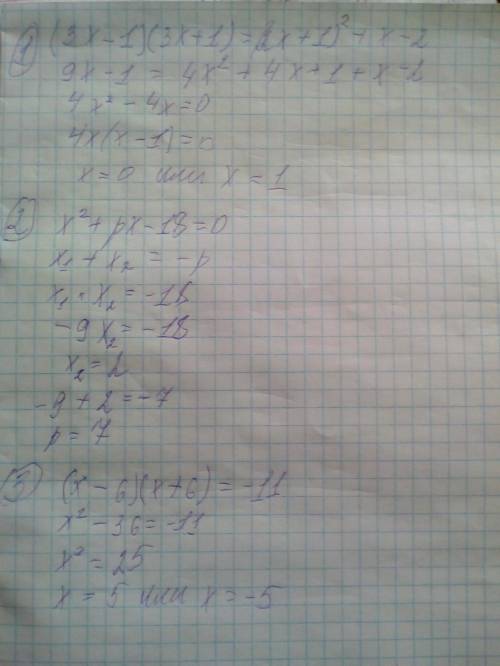 ① (3x-1)(3x+1)=(2x+1)²+x-2
9x-1 = 4x²+4x+1+x-2
4x²-4x=0
4x(x-1)=0
x=0 или x=1
② x²+px-18=0
x₁+x₂=-p
x₁·x₂=-18
-9x₂=-18
x₂=2
-9+2=-7
p=7
③ (x-6)(x+6)=-11
x²-36=-11
x²=25
x=5 или x=-5